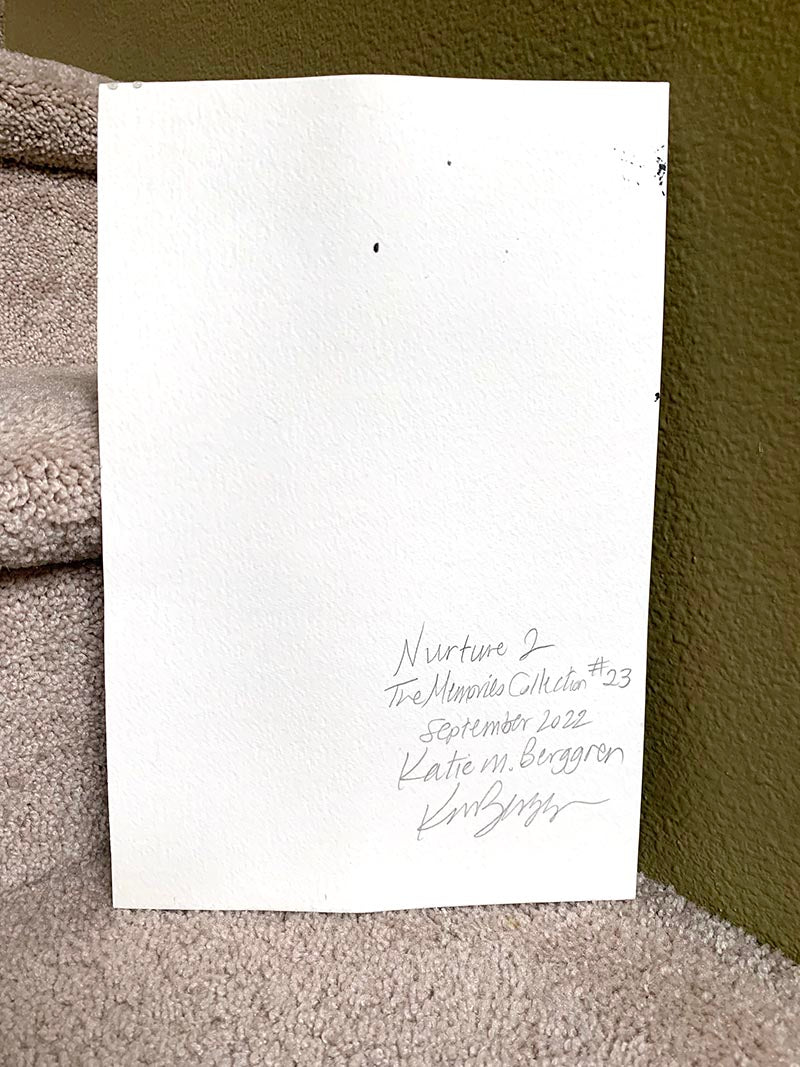 Nurture 2
The Memories Collection #23
September 2022
Katie M. Berggren
KM Berggren